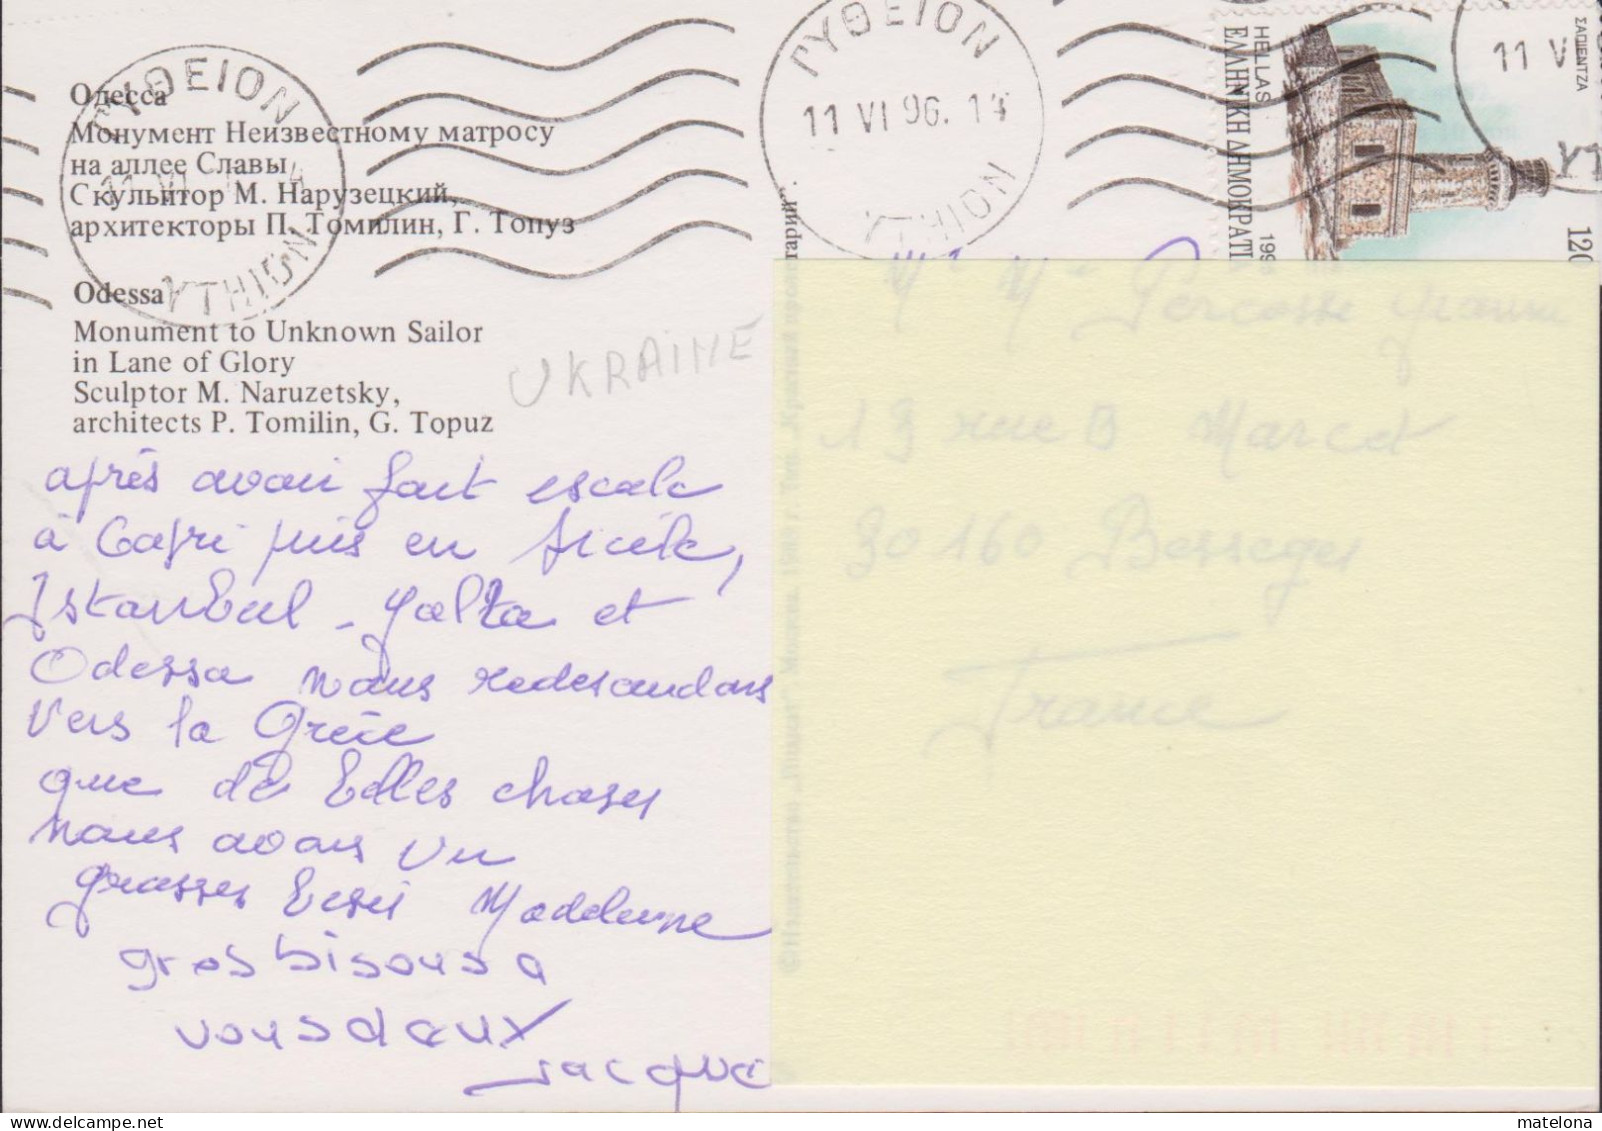 Одесса
Монумент Неизвестному матросу
на аллее Славы
Скульптор М. Нарузецкий,
архитекторы П. Томилин, Г. Топуз
Odessa
Monument to Unknown Sailor
in Lane of Glory
Sculptor M. Naruzetsky,
architects P. Tomilin, G. Topuz
UKRAINE
après avoir fait escale
à Capri puis en Sicile,
Istanbul - Yalta et
Odessa nous redescendons
vers la Grèce
que de belles choses
nous avons vu
grosses bises Madeleine
gros bisous a
vous deux
Jacques
ΓΥΘΕΙΟΝ
11 VI 96. 14
YTHION
ΓΥΘΕΙΟΝ
YTHION
HELLAS
ΕΛΛΗΝΙΚΗ ΔΗΜΟΚΡΑΤΙ
ΣΑΠΙΕΝΤΖΑ
120
11 VI
13 rue B Marcet
30160 Bessèges
France
matelona